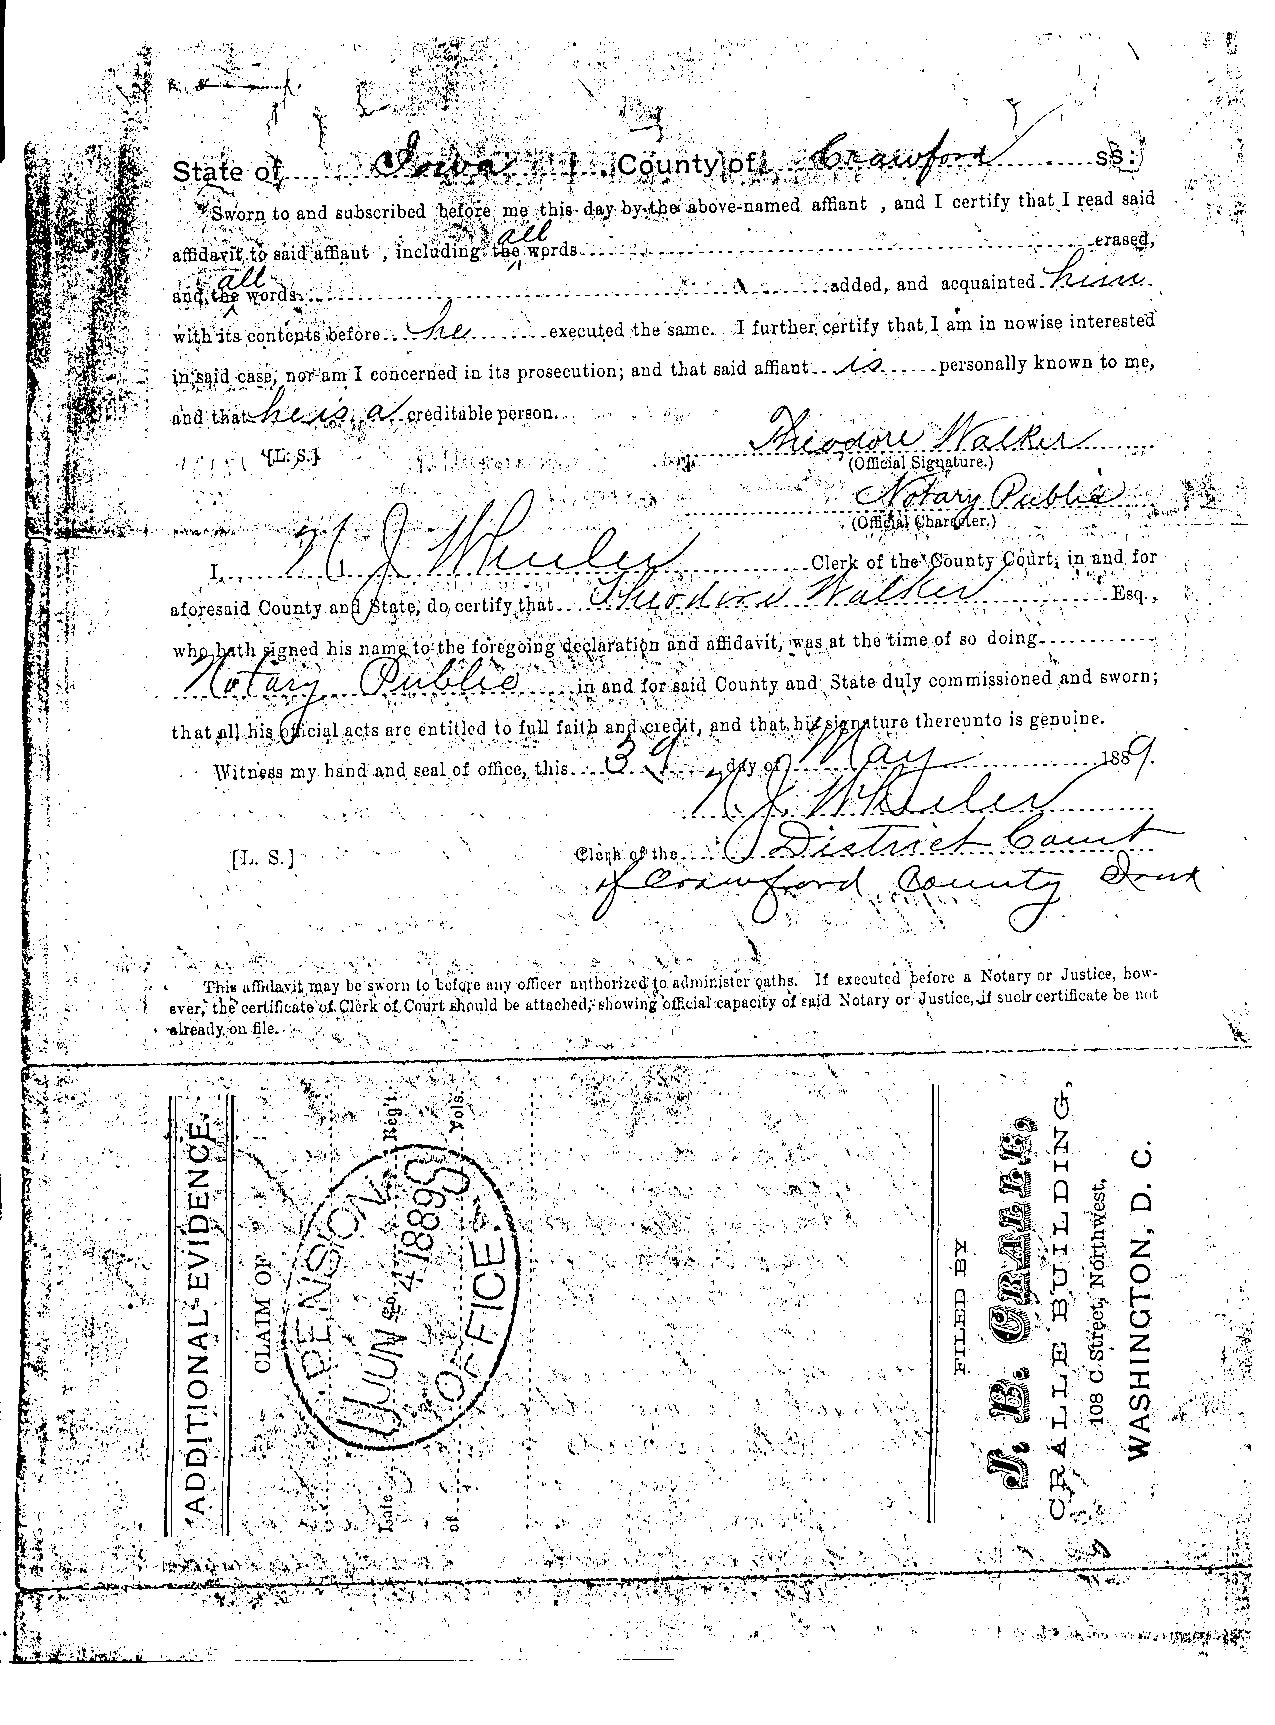 State of Iowa County of Crawford ss:
Sworn to and subscribed before me this day by the above-named affiant , and I certify that I read said
all
affidavit to said affiant , including the words erased,
all
and the words added, and acquainted him
with its contents before he executed the same. I further certify that I am in nowise interested
in said case, nor am I concerned in its prosecution; and that said affiant is personally known to me,
and that he is a creditable person.
Theodore Walker
[L. S.] (Official Signature.)
Notary Public
(Official Character.)
I, N. J. Wheeler Clerk of the County Court, in and for
aforesaid County and State, do certify that Theodore Walker Esq.,
who hath signed his name to the foregoing declaration and affidavit, was at the time of so doing
Notary Public in and for said County and State duly commissioned and sworn;
that all his official acts are entitled to full faith and credit, and that his signature thereunto is genuine.
Witness my hand and seal of office, this day of May 1889.
N. J. Wheeler
[L. S.] Clerk of the District Court
of Crawford County Iowa
This affidavit may be sworn to before any officer authorized to administer oaths. If executed before a Notary or Justice, how-
ever, the certificate of Clerk of Court should be attached, showing official capacity of said Notary or Justice, if such certificate be not
already on file.
ADDITIONAL EVIDENCE.
CLAIM OF
Late Co. Reg't.
of Vols.
PENSION
JUN 4 1889
OFFICE.
FILED BY
J. B. CRALLE,
CRALLE BUILDING,
108 C. Street, Northwest,
WASHINGTON, D. C.